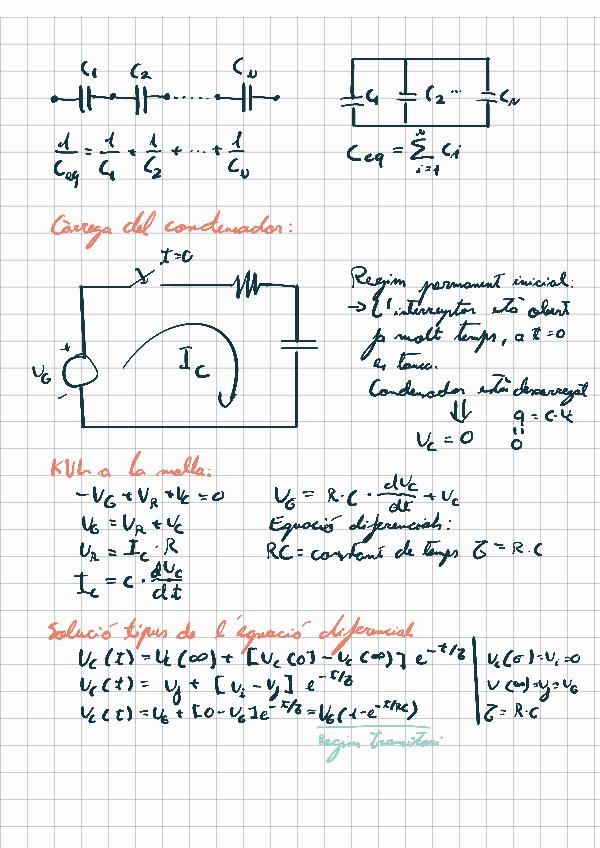 C1 C2 CN
C1 C2 ... CN
1/Ceq = 1/C1 + 1/C2 + ... + 1/CN
Ceq = Σ Ci
i=1
Càrrega del condensador:
t=0
VG
+
-
IC
Regim permanent inicial:
→ L'interruptor està obert
p molt temps, a t=0
es tanca.
Condensador està descarregat
⇓ q = C·Vc
VC = 0 0
KVL a la malla:
-VG + VR + VC = 0
VG = VR + VC
VR = IC · R
IC = C · dVC/dt
VG = R·C · dVC/dt + VC
Equació diferencials:
RC = constant de temps τ = R·C
Solució tipus de l'equació diferencial
VC(t) = VC(∞) + [VC(0) - VC(∞)] e^-t/τ
VC(t) = Vf + [Vi - Vf] e^-t/τ
VC(t) = VG + [0 - VG] e^-t/τ = VG(1 - e^-t/RC)
VC(0) = Vi = 0
V(∞) = Vf = VG
τ = R·C
Regim transitori